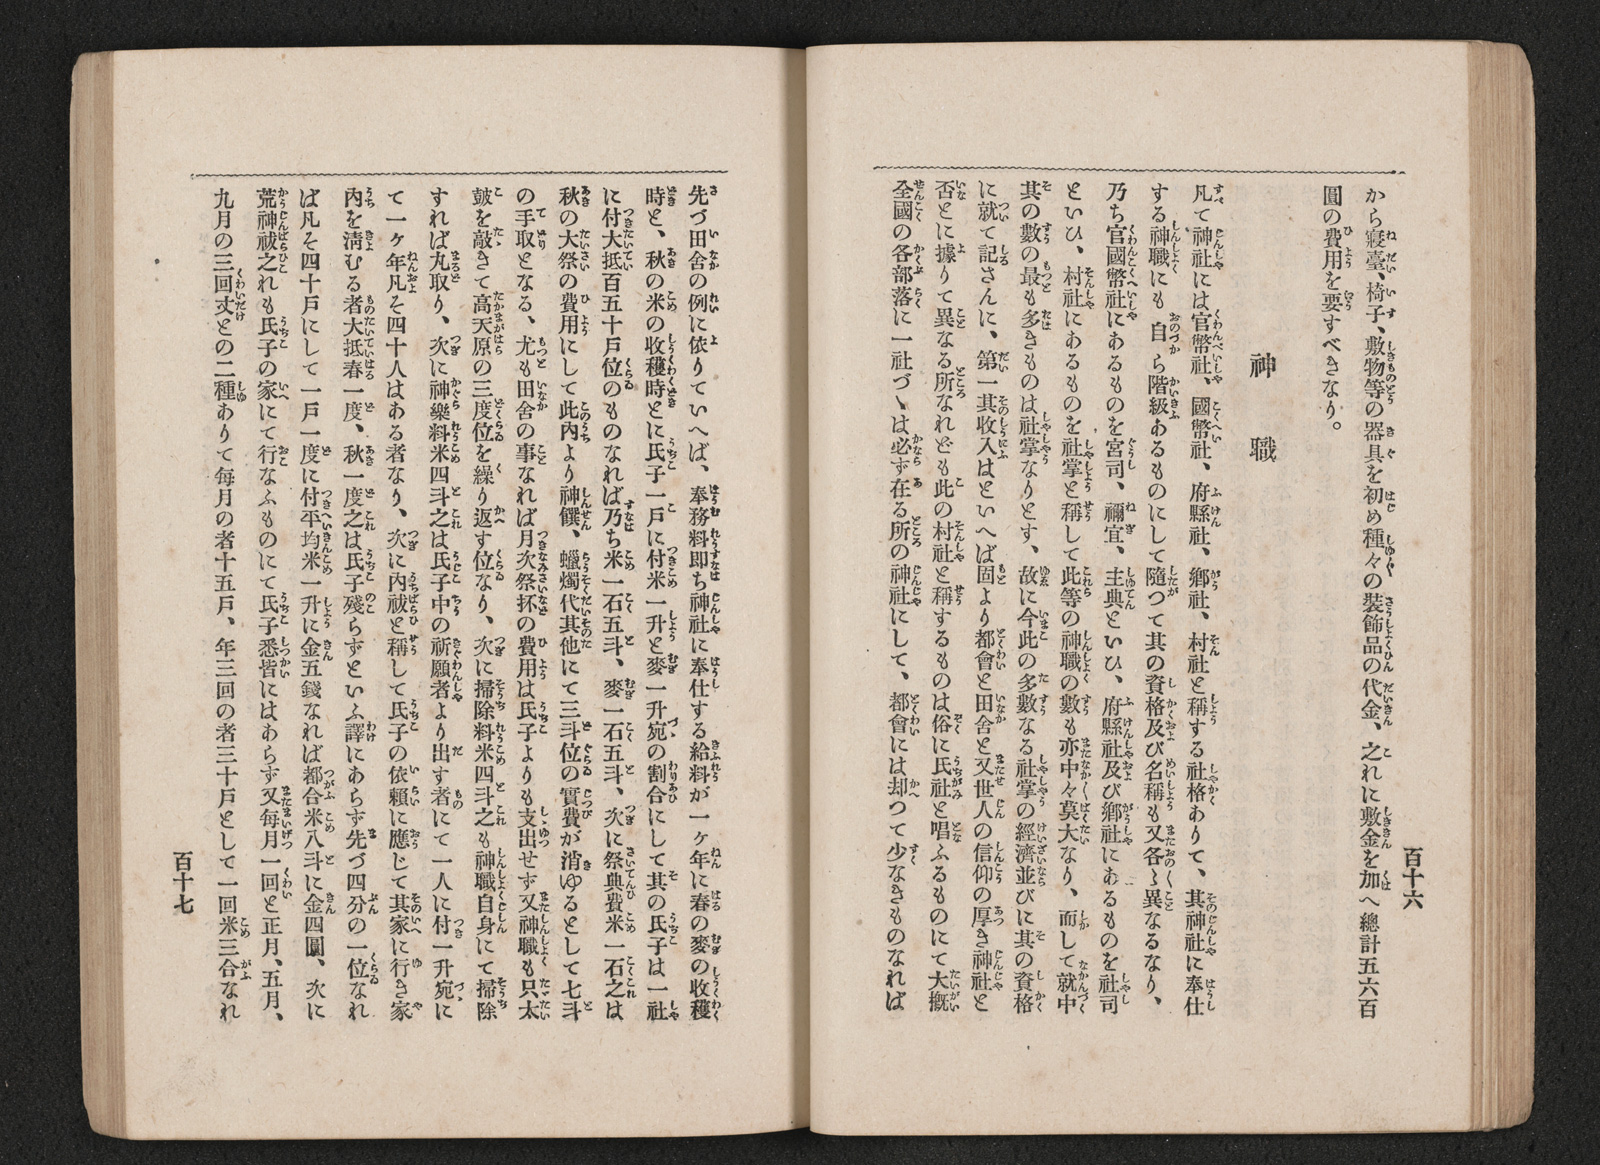 百十六
から寢臺、椅子、敷物等の器具を初め種々の裝飾品の代金、之れに敷金を加へ總計五六百
圓の費用を要すべきなり。
神職
凡て神社には官幣社、國幣社、府縣社、鄕社、村社と稱する社格ありて、其神社に奉仕
する神職にも自ら階級あるものにして隨つて其の資格及び名稱も又各〻異なるなり、
乃ち官國幣社にあるものを宮司、禰宜、主典といひ、府縣社及び鄕社にあるものを社司
といひ、村社にあるものを社掌と稱して此等の神職の數も亦中々莫大なり、而して就中
其の數の最も多きものは社掌なりとす、故に今此の多數なる社掌の經濟並びに其の資格
に就て記さんに、第一其收入はといへば固より都會と田舍と又世人の信仰の厚き神社と
否とに據りて異なる所なれども此の村社と稱するものは俗に氏社と唱ふるものにて大槪
全國の各部落に一社づゝは必ず在る所の神社にして、都會には却つて少なきものなれば
先づ田舍の例に依りていへば、奉務料卽ち神社に奉仕する給料が一ヶ年に春の麥の收穫
時と、秋の米の收穫時とに氏子一戸に付米一升と麥一升宛の割合にして其の氏子は一社
に付大抵百五十戸位のものなれば乃ち米一石五斗、麥一石五斗、次に祭典費米一石之は
秋の大祭の費用にして此內より神饌、蠟燭代其他にて三斗位の實費が消ゆるとして七斗
の手取となる、尤も田舍の事なれば月次祭抔の費用は氏子よりも支出せず又神職も只太
鼓を敲きて高天原の三度位を繰り返す位なり、次に掃除料米四斗之も神職自身にて掃除
すれば丸取り、次に神樂料米四斗之は氏子中の祈願者より出す者にて一人に付一升宛に
て一ヶ年凡そ四十人はある者なり、次に內祓と稱して氏子の依賴に應じて其家に行き家
內を淸むる者大抵春一度、秋一度之は氏子殘らずといふ譯にあらず先づ四分の一位なれ
ば凡そ四十戸にして一戸一度に付平均米一升に金五錢なれば都合米八斗に金四圓、次に
荒神祓之れも氏子の家にて行なふものにて氏子悉皆にはあらず又每月一回と正月、五月、
九月の三回丈との二種ありて每月の者十五戸、年三回の者三十戸として一回米三合なれ
百十七